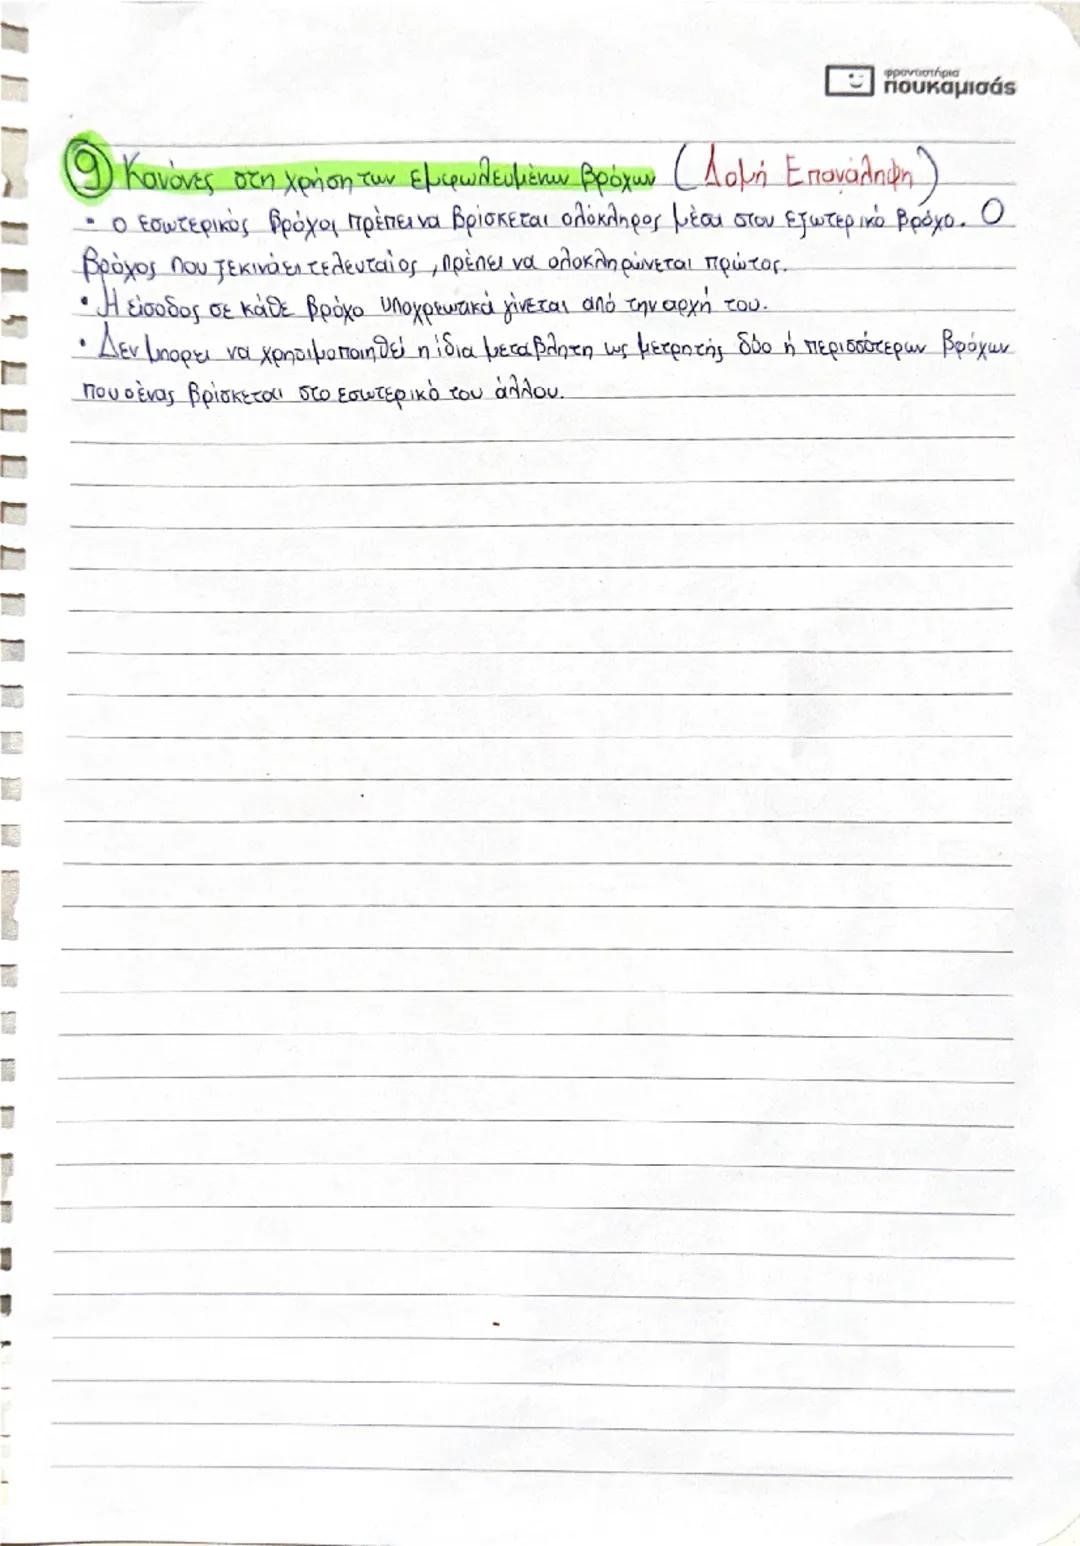 φροντιστήρια
πουκαμισάς
9 Κανόνες στη χρήση των εμφωλευμένων βρόχων (Δομή Επανάληψη)
- Ο εσωτερικός βρόχος πρέπει να βρίσκεται ολόκληρος μέσα στον εξωτερικό βρόχο. Ο
βρόχος που ξεκινάει τελευταίος, πρέπει να ολοκληρώνεται πρώτος.
• Η είσοδος σε κάθε βρόχο υποχρεωτικά γίνεται από την αρχή του.
• Δεν μπορεί να χρησιμοποιηθεί η ίδια μεταβλητη ως μετρητής δύο ή περισσότερων βρόχων
που ο ένας βρίσκεται στο εσωτερικό του άλλου.